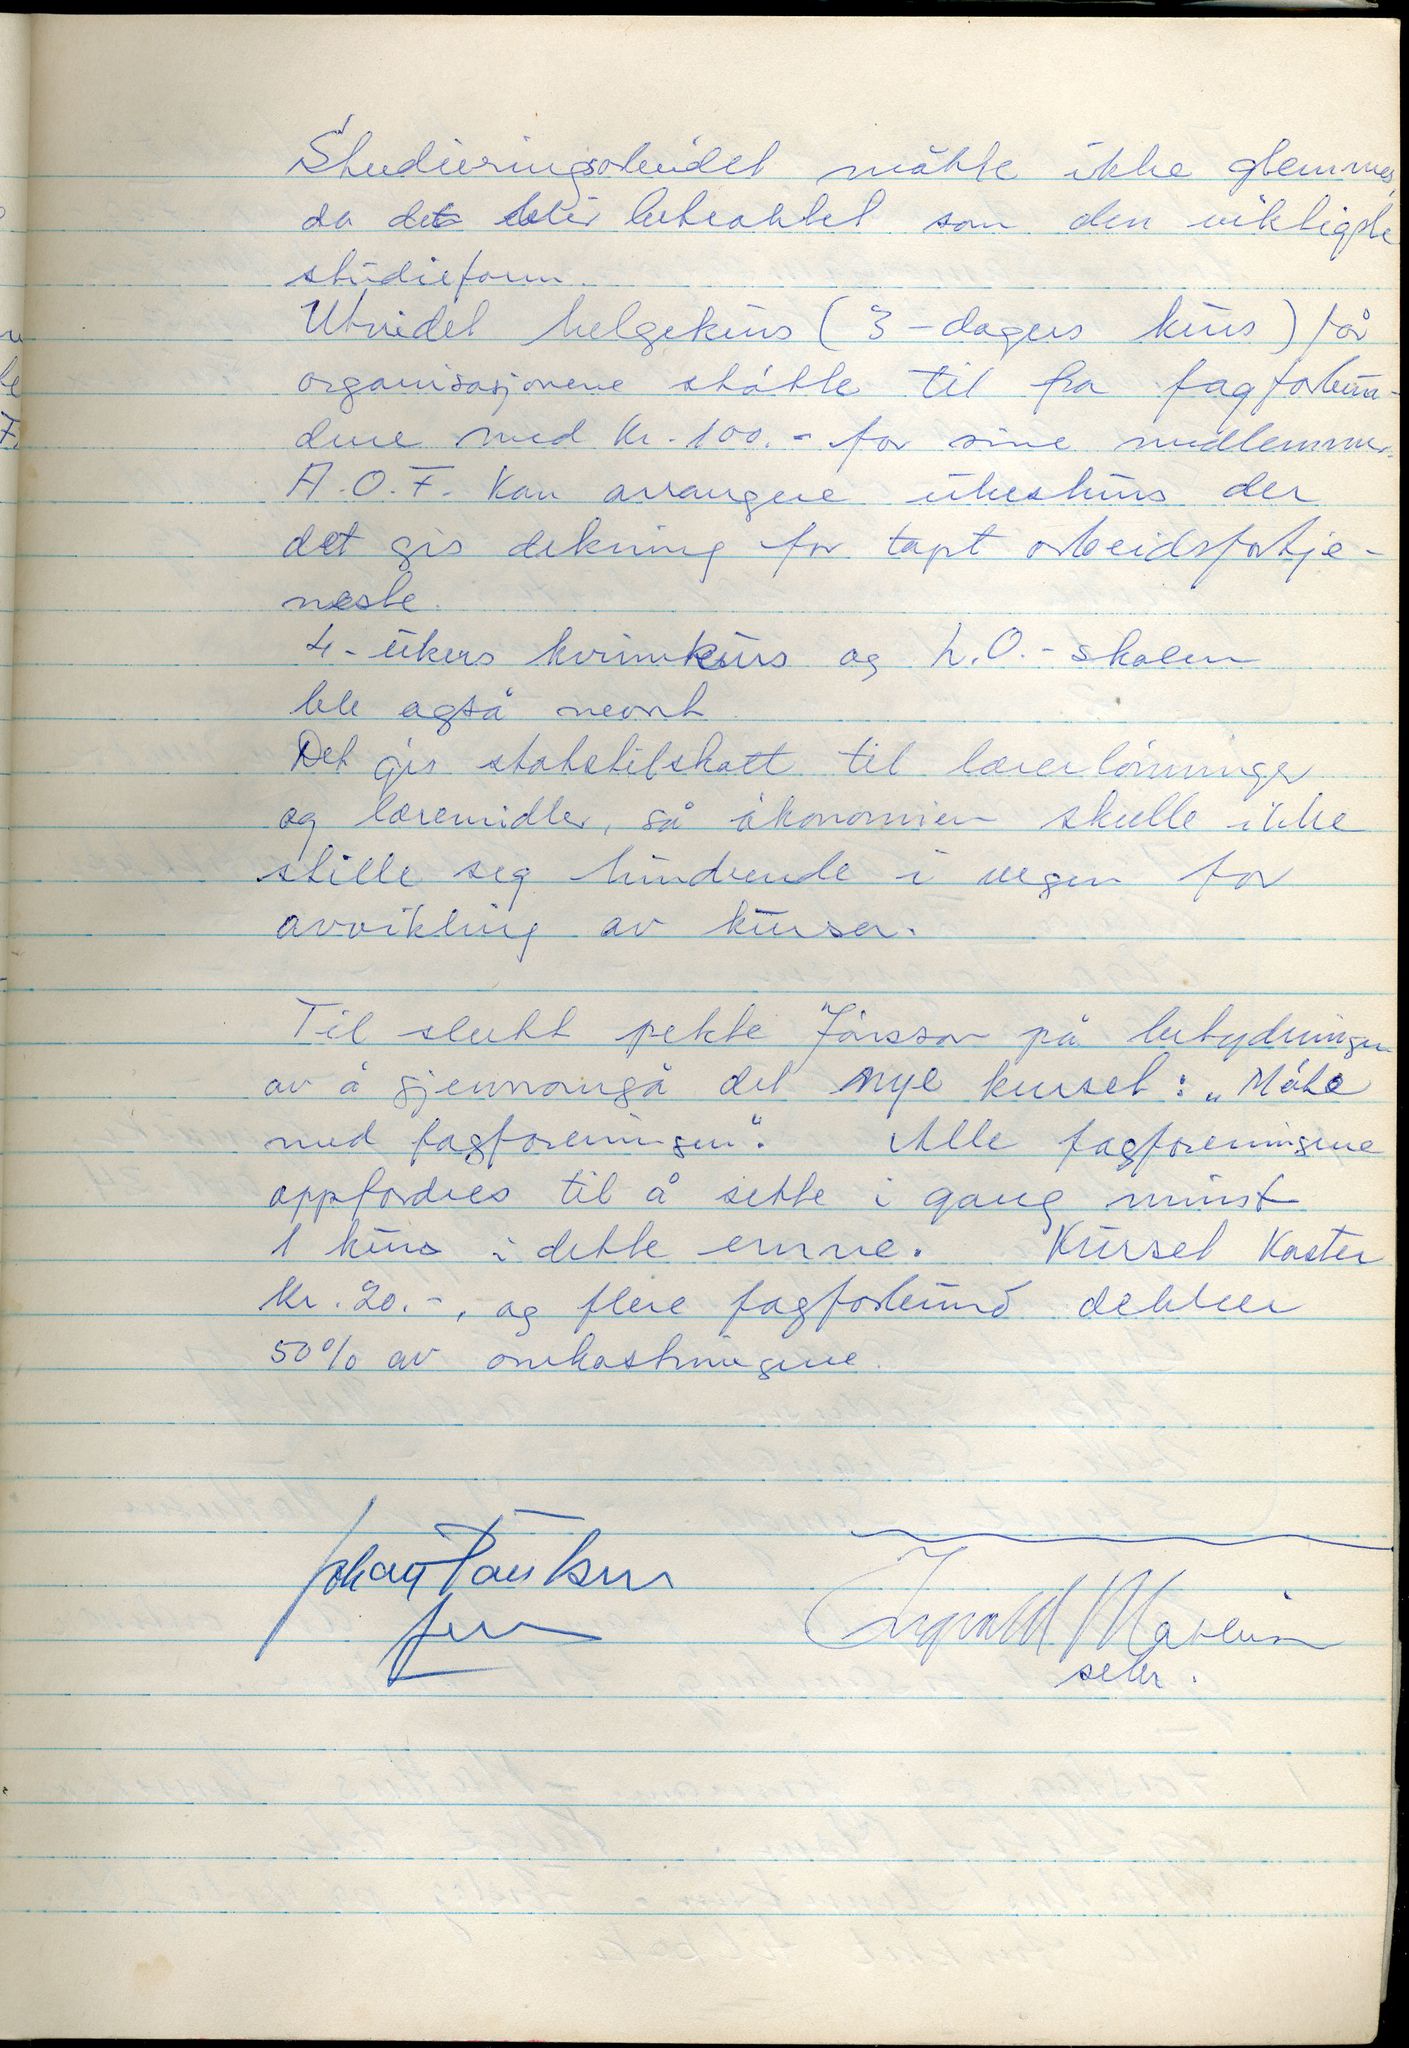 Studieringsarbeidet måtte ikke glemmes,
da det blir betraktet som den viktigste
studieform.
Utvidet helgekurs (3-dagers kurs) får
organisasjonene støtte til fra fagforbun-
dene med kr. 100.- for sine medlemmer.
A.O.F. kan arrangere ukeskurs der
det gis dekning for tapt arbeidsfortje-
neste.
4-ukers kvinnekurs og L.O.-skolen
ble også nevnt.
Det gis statstilskott til lærerlønninger
og læremidler, så økonomien skulle ikke
stille seg hindrende i vegen for
avvikling av kurser.
Til slutt pekte Jönsson på betydningen
av å gjennomgå det nye kurset: „Møte
med fagforeningen". Alle fagforeningene
oppfordres til å sette i gang minst
1 kurs i dette emne. Kurset koster
kr. 20.-, og flere fagforbund dekker
50% av omkostningene.
Johan Paulsen
form
Ingvald Mathisen
sekr.